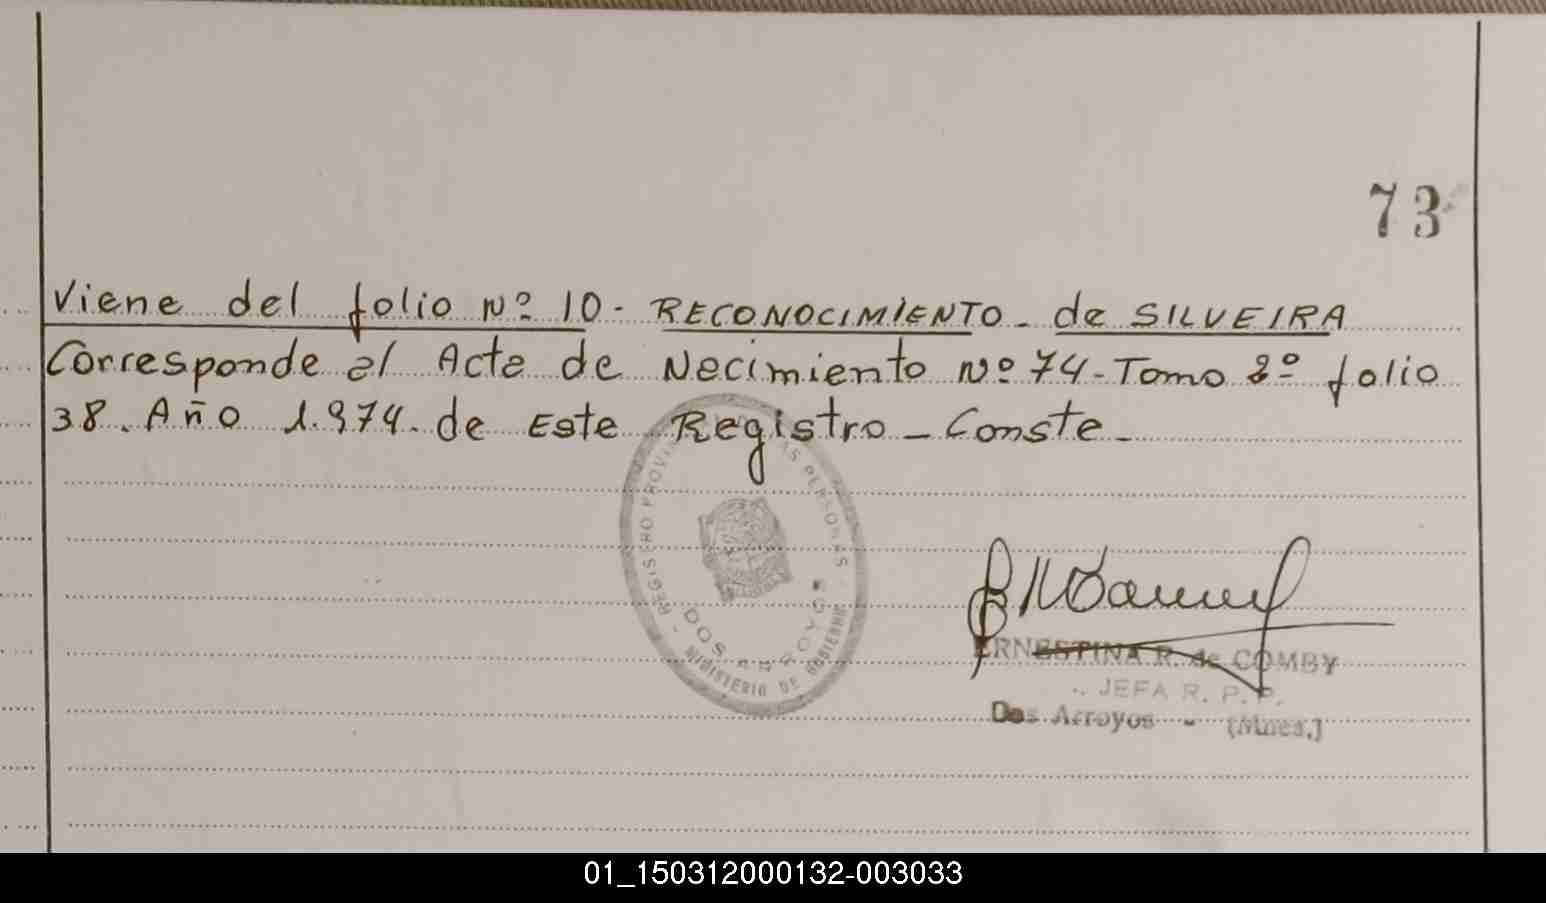 73
Viene del folio Nº 10- RECONOCIMIENTO- de SILVEIRA
Corresponde al Acta de Nacimiento Nº 74-Tomo 2º folio
38. Año 1.974. de Este Registro-Conste-
REGISTRO PROVIN LAS PERSONAS
DOS ARROYOS
MINISTERIO DE GOBIERNO
ERNESTINA R. de COMBY
JEFA R. P. P.
Dos Arroyos - (Mnes.)
01_150312000132-003033